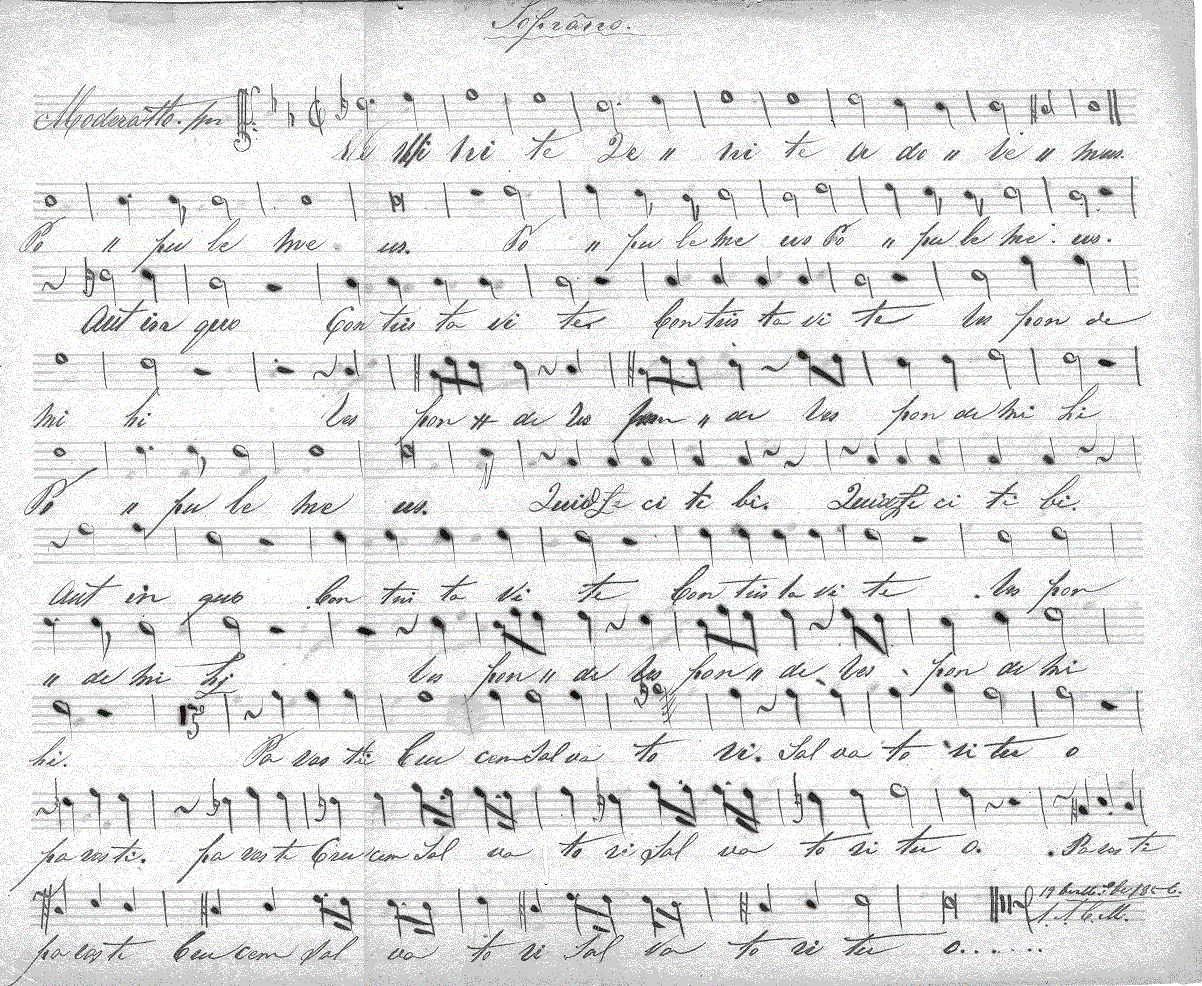 Soprano.
Moderatto.
Ve ni te Ve " ni te a do " re " mus.
Po " pu le me us. Po " pu le me us Po " pu le me. us.
Aut in quo Con tris ta vi te Con tris ta vi te res pon de
mi hi res pon de res pon " de res pon de mi hi
Po " pu le me us. Quid fe ci ti bi. Quid fe ci ti bi.
Aut in quo Con tris ta vi te Con tris ta vi te res pon
" de mi hi res pon " de res pon " de res pon de mi
hi. Pa ras ti Cru cem Sal va to ri. Sal va to ri tu o
pa ras ti. pa ras ti Cru cem Sal va to ri Sal va to ri tu o. Pa ras ti
pa ras ti Cru cem Sal va to ri Sal va to ri tu o......